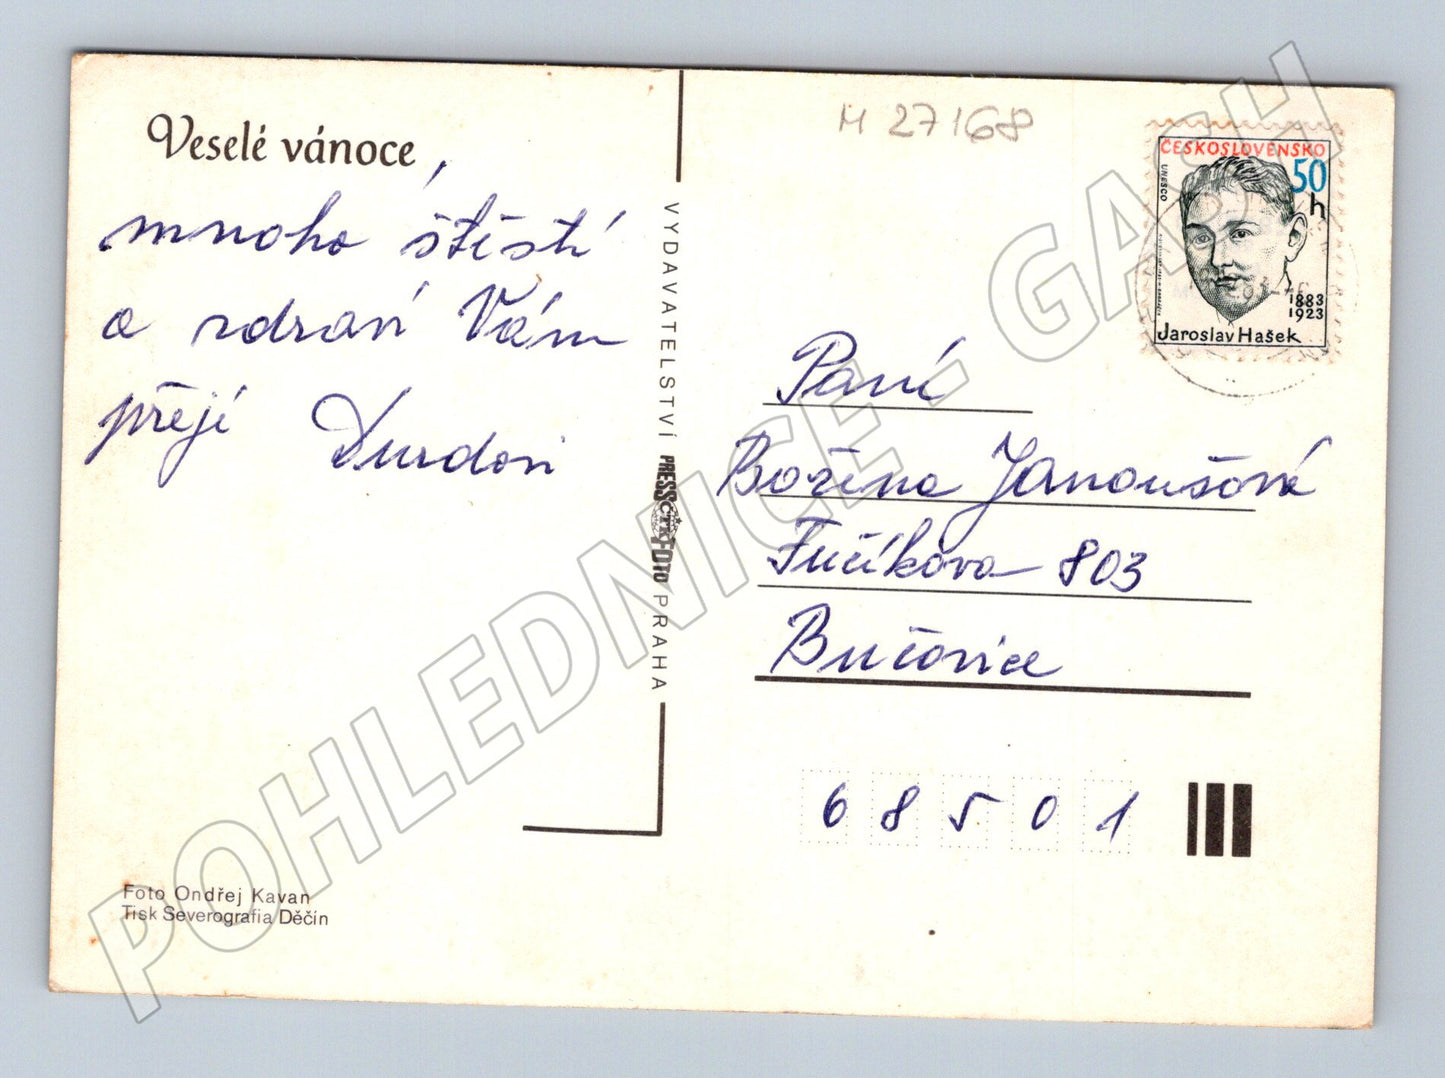 Veselé vánoce,
mnoho štěstí
a zdraví Vám
přejí Durdovi
Foto Ondřej Kavan
Tisk Severografia Děčín
VYDAVATELSTVÍ PRESSFOTO PRAHA
ČTK
M 27168
ČESKOSLOVENSKO
50
h
UNESCO
1883
1923
Jaroslav Hašek
Paní
Božena Janoušová
Fučíkova 803
Bučovice
68501
POHLEDNICE - GASH